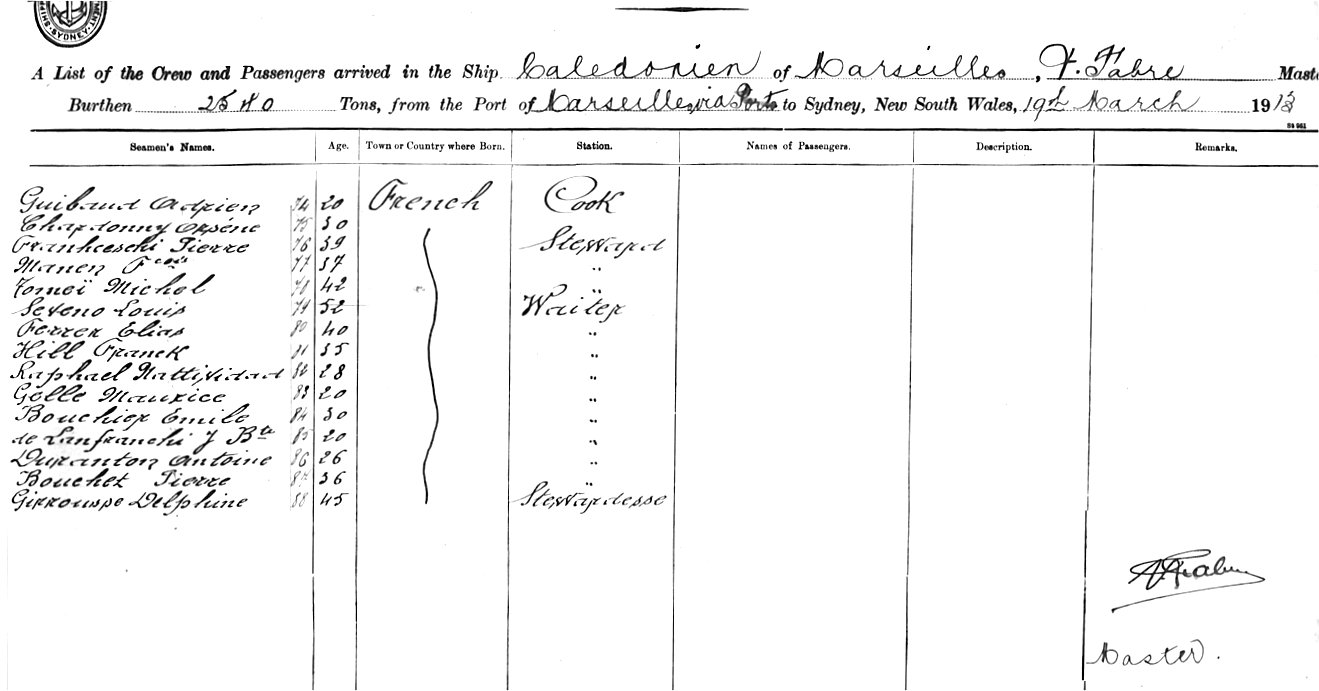 SYDNEY
A List of the Crew and Passengers arrived in the Ship Caledonien of Marseilles, F. Fabre Maste
Burthen 2540 Tons, from the Port of Marseilles, via Ports to Sydney, New South Wales, 19th March 1913
Seamen's Names. Age. Town or Country where Born. Station. Names of Passengers. Description. Remarks.
Guibaud Adrien 74 20 French Cook
Chardonny Arsène 75 30
Franhceschi Pierre 76 39 Steward
Manen Fcois 77 37 "
Tomeï Michel 78 42 "
Seveno Louis 79 52 Waiter
Ferrer Elias 80 40 "
Hill Franck 81 35 "
Raphael Nattividad 82 28 "
Gölle Maurice 83 20 "
Bouchier Emile 84 30 "
de Lanfranchi J Bte 85 20 "
Duranton Antoine 86 26 "
Bouchet Pierre 87 36 "
Girrouspe Delphine 88 45 Stewardesse
Master.